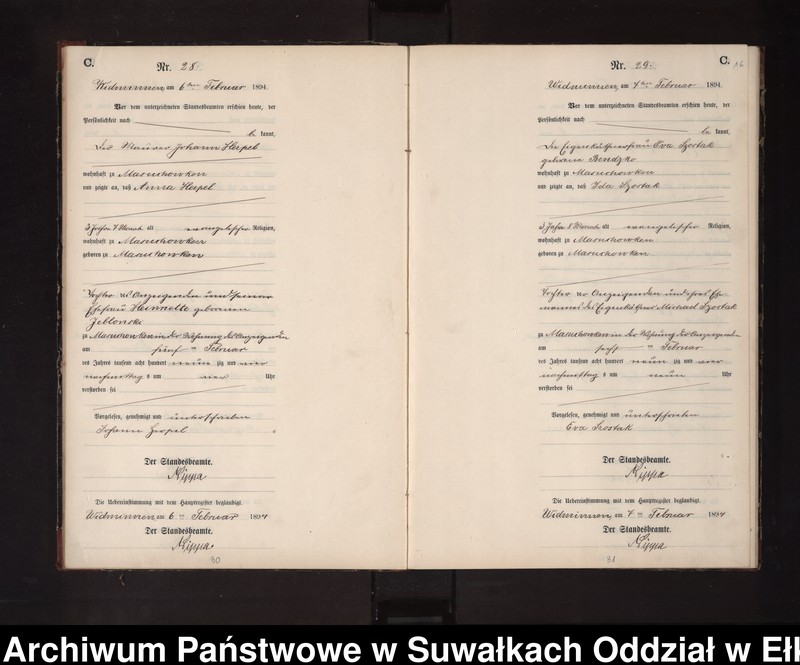 C.
Nr. 28.
Widminnen, am 6ten Februar 1894.
Vor dem unterzeichneten Standesbeamten erschien heute, der
Persönlichkeit nach
be kannt,
Der Maurer Johann Herpel
wohnhaft zu Maruchowken
und zeigte an, daß Anna Herpel
3 Jahre 7 Monat alt evangelischer Religion,
wohnhaft zu Maruchowken
geboren zu Maruchowken
Tochter des Anzeigenden und seiner
Ehefrau Henriette geborenen
Jeblonski
zu Maruchowken in der Wohnung des Anzeigenden
am fünf ten Februar
des Jahres tausend acht hundert neun zig und vier
nachmittags um vier Uhr
verstorben sei
Vorgelesen, genehmigt und unterschrieben
Johann Herpel
Der Standesbeamte.
Kippa
Die Uebereinstimmung mit dem Hauptregister beglaubigt.
Widminnen, am 6ten Februar 1894
Der Standesbeamte.
Kippa
30
C.
Nr. 29.
Widminnen, am 7ten Februar 1894.
Vor dem unterzeichneten Standesbeamten erschien heute, der
Persönlichkeit nach
be kannt,
Die Eigenkäthnerfrau Eva Szostak
geborene Bendzko
wohnhaft zu Maruchowken
und zeigte an, daß Ida Szostak
3 Jahre 8 Monat alt evangelischer Religion,
wohnhaft zu Maruchowken
geboren zu Maruchowken
Tochter der Anzeigenden und ihres Ehe
mannes des Eigenkäthner Michael Szostak
zu Maruchowken in der Wohnung der Anzeigenden
am sechs ten Februar
des Jahres tausend acht hundert neun zig und vier
nachmittags um neun Uhr
verstorben sei
Vorgelesen, genehmigt und unterschrieben
Eva Szostak
Der Standesbeamte.
Kippa
Die Uebereinstimmung mit dem Hauptregister beglaubigt.
Widminnen, am 7ten Februar 1894
Der Standesbeamte.
Kippa
31
Archiwum Państwowe w Suwałkach Oddział w Eł